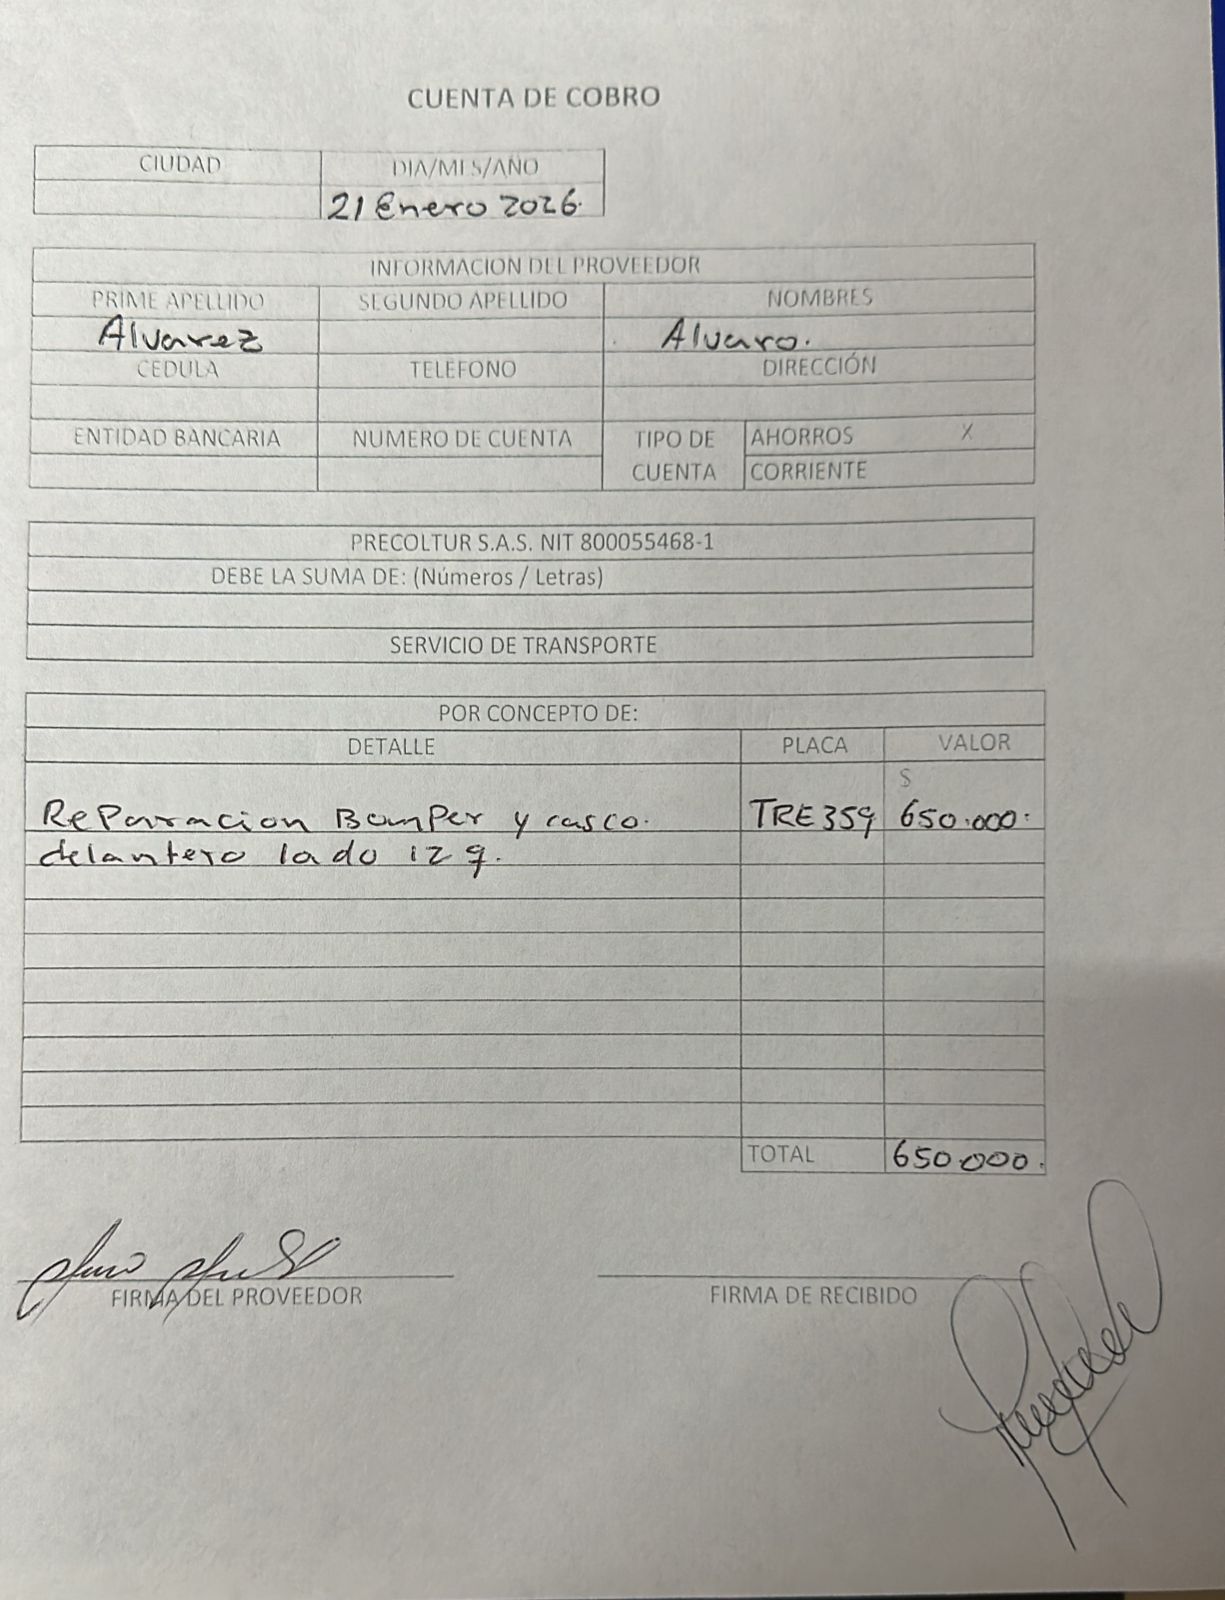 CUENTA DE COBRO
CIUDAD DIA/MES/AÑO
21 Enero 2026.
INFORMACION DEL PROVEEDOR
PRIME APELLIDO SEGUNDO APELLIDO NOMBRES
Alvarez Alvaro.
CEDULA TELEFONO DIRECCIÓN
ENTIDAD BANCARIA NUMERO DE CUENTA TIPO DE CUENTA AHORROS X
CORRIENTE
PRECOLTUR S.A.S. NIT 800055468-1
DEBE LA SUMA DE: (Números / Letras)
SERVICIO DE TRANSPORTE
POR CONCEPTO DE:
DETALLE PLACA VALOR
$
Reparacion Bomper y casco. TRE359 650.000.
delantero lado izq.
TOTAL 650.000.
FIRMA DEL PROVEEDOR FIRMA DE RECIBIDO